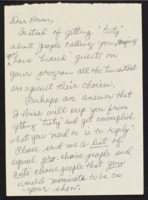 Dear Susan,
Instead of getting "testy"
about people calling you angry
to have biased guests on
your program all the time that
are against their choices,
Perhaps an answer that
I think will keep you from
getting "testy" and yet accomplish
what you need to is to reply:
Please send me a list of
equal pro choice people and
anti choice people that you
would nominate to be on
your show.